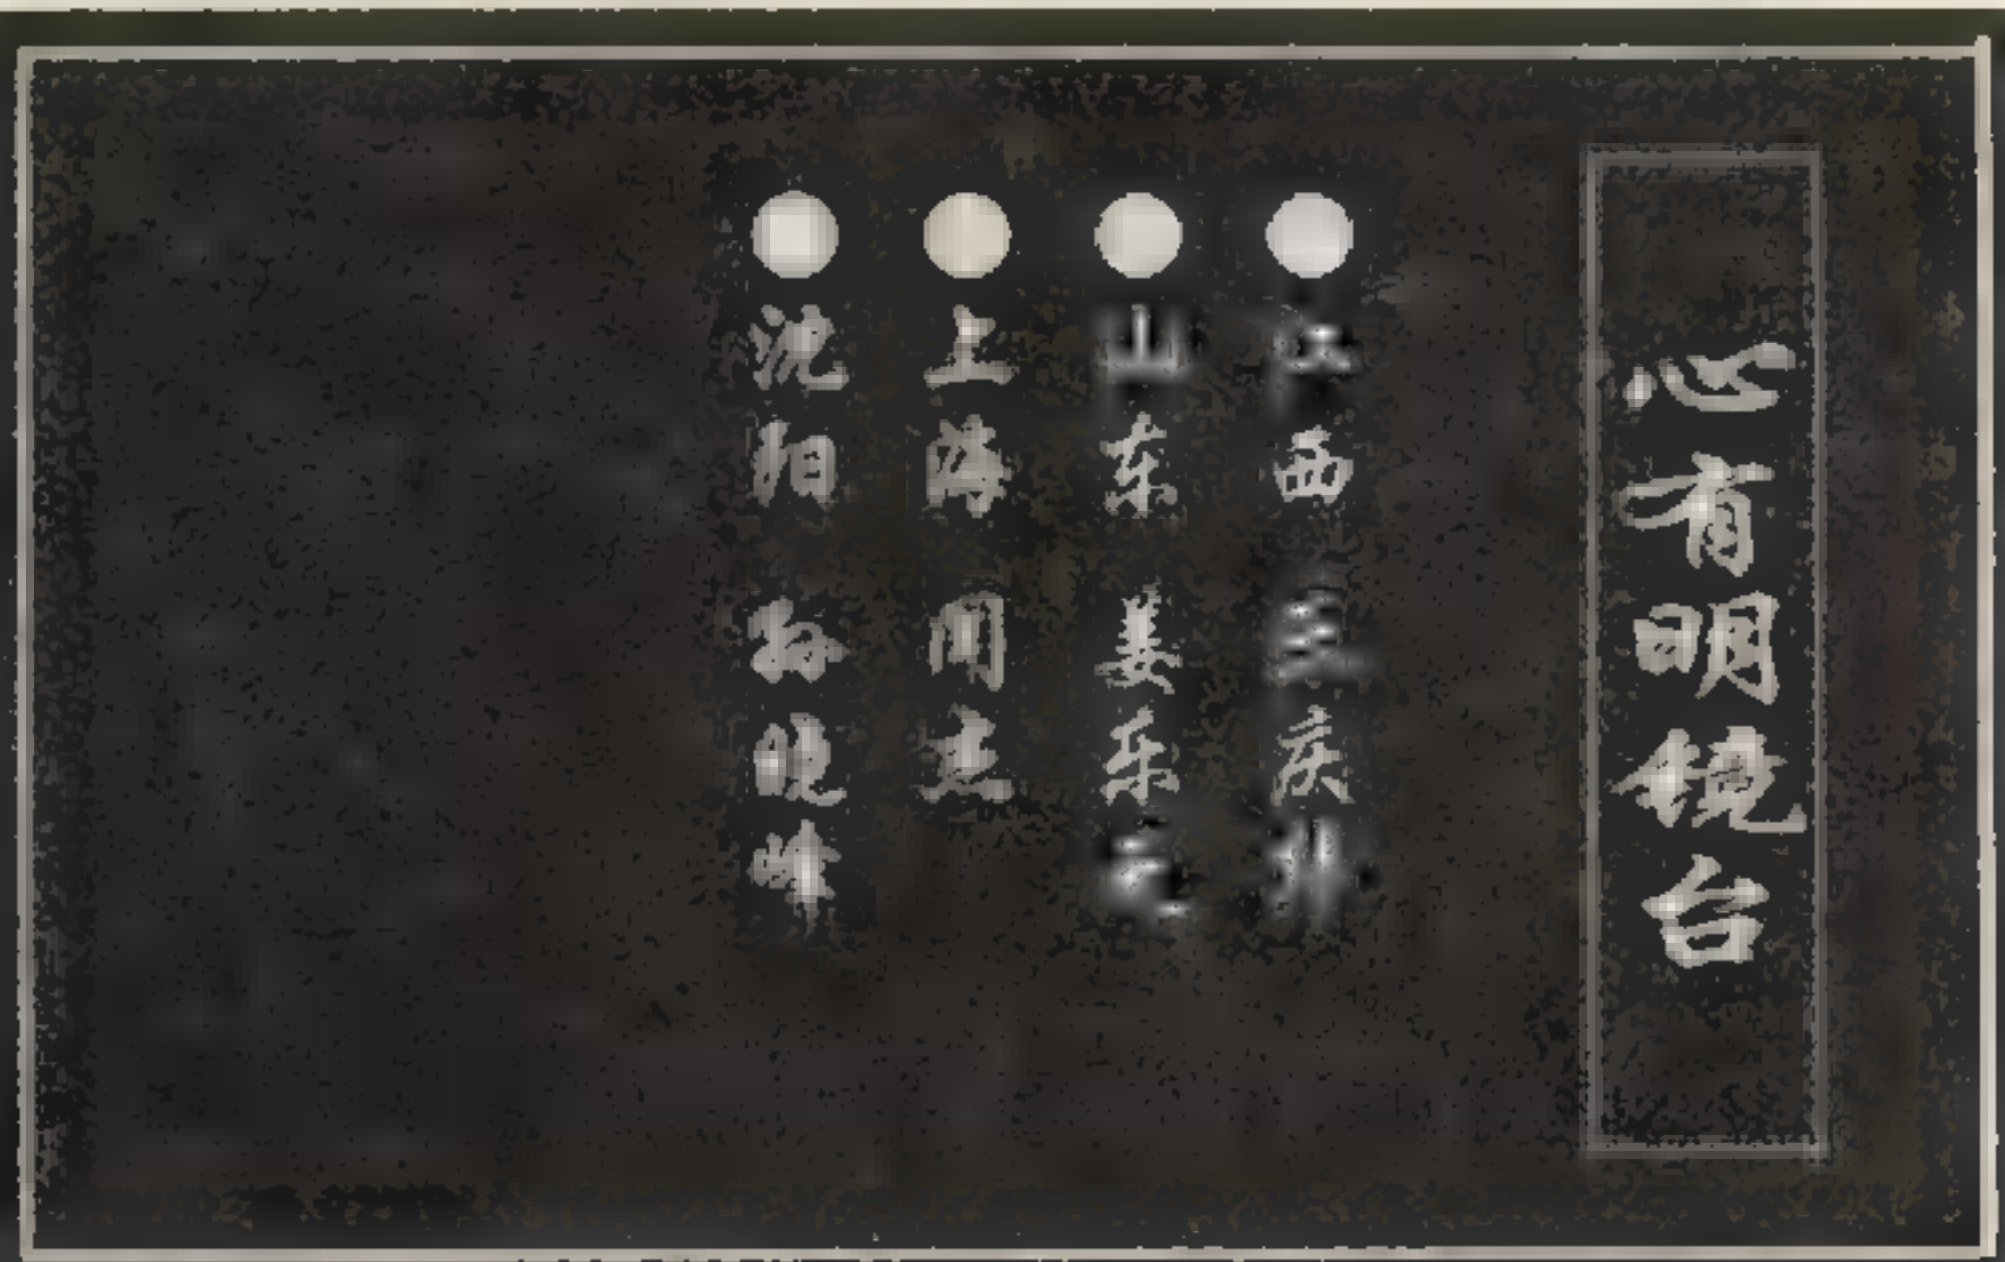 心有明镜台
江西 王庆邦
山东 姜乐
上海 周杰
沈阳 孙晓峰